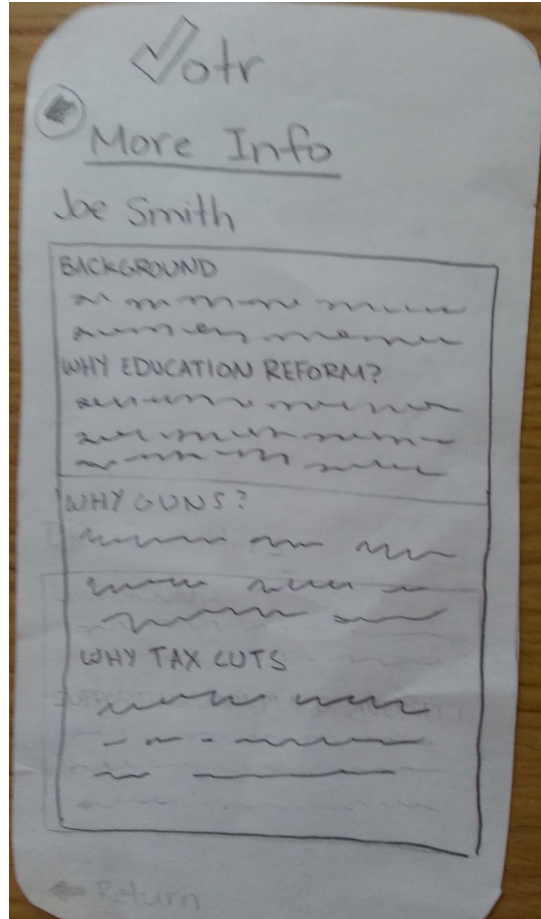 Votr
More Info
Joe Smith
BACKGROUND
WHY EDUCATION REFORM?
WHY GUNS?
WHY TAX CUTS
Return